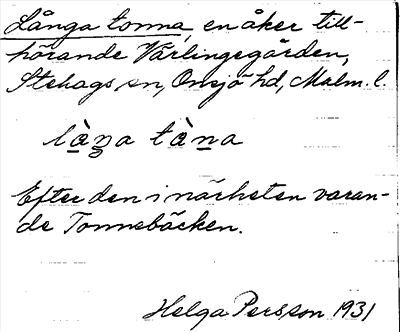 Långa tonna, en åker till-
hörande Värlingegården,
Stehags sn, Onsjö hd, Malm. l.
làŋa tàna
Efter den i närheten varan-
de Tonnebäcken.
Helga Persson 1931